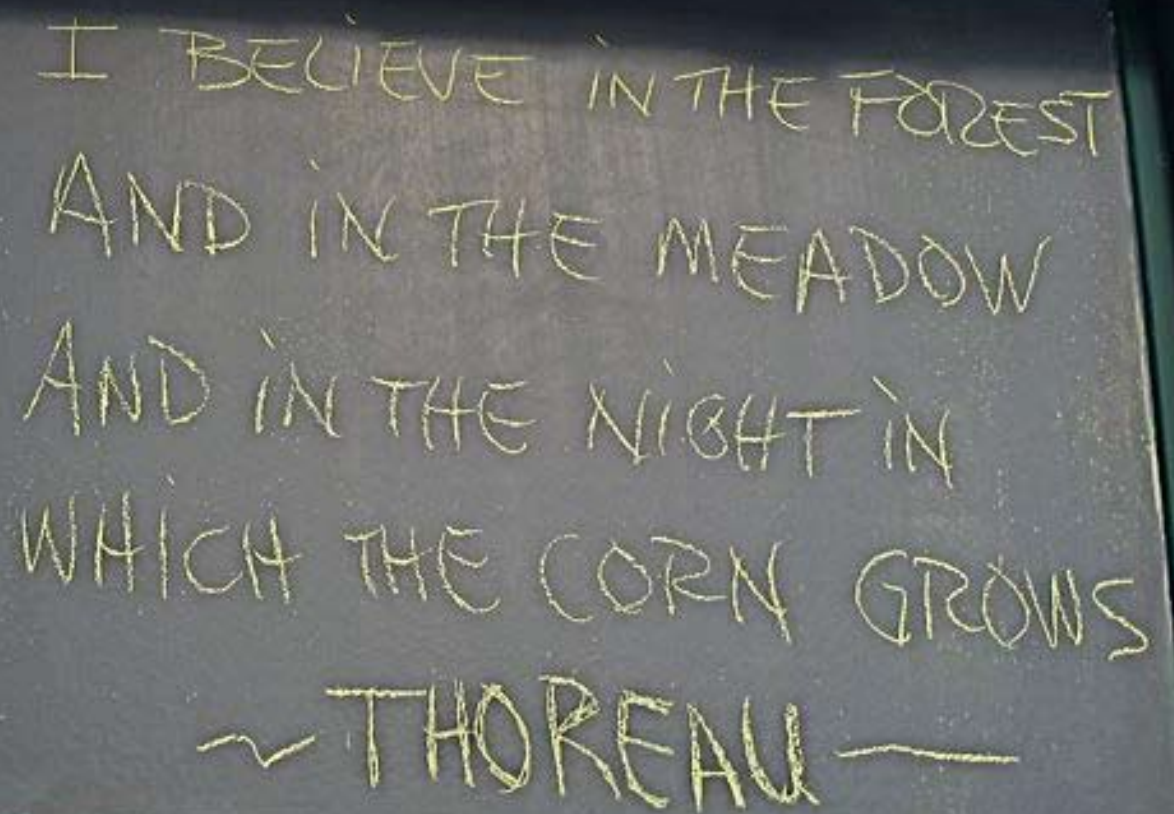 I BELIEVE IN THE FOREST
AND IN THE MEADOW
AND IN THE NIGHT IN
WHICH THE CORN GROWS
~ THOREAU —